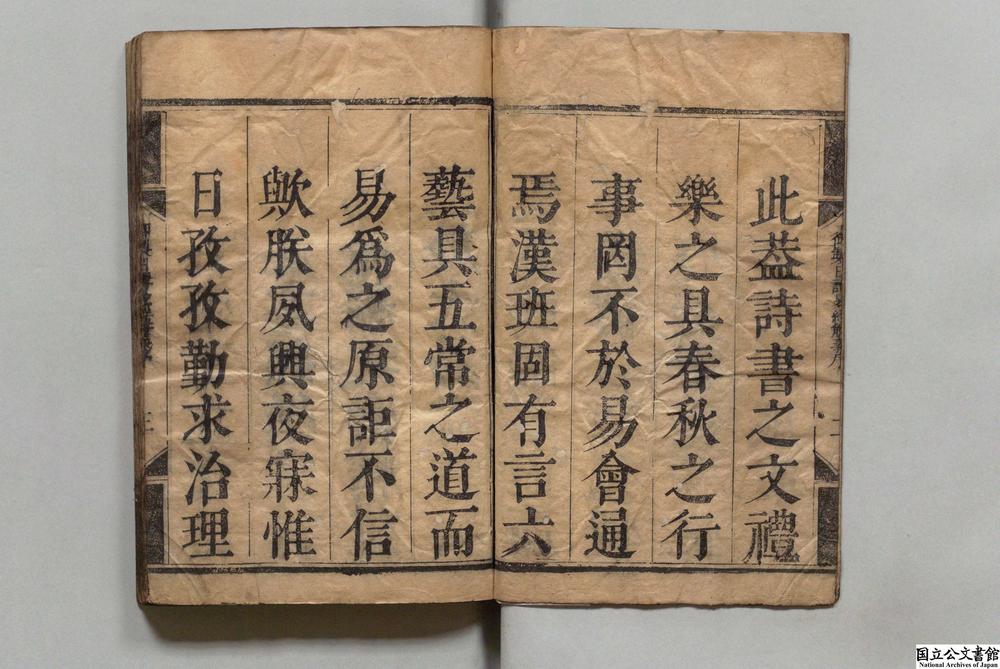 此蓋詩書之文禮
樂之具春秋之行
事罔不於易會通
焉漢班固有言六
藝具五常之道而
易爲之原詎不信
歟朕夙興夜寐惟
日孜孜勤求治理
国立公文書館
National Archives of Japan